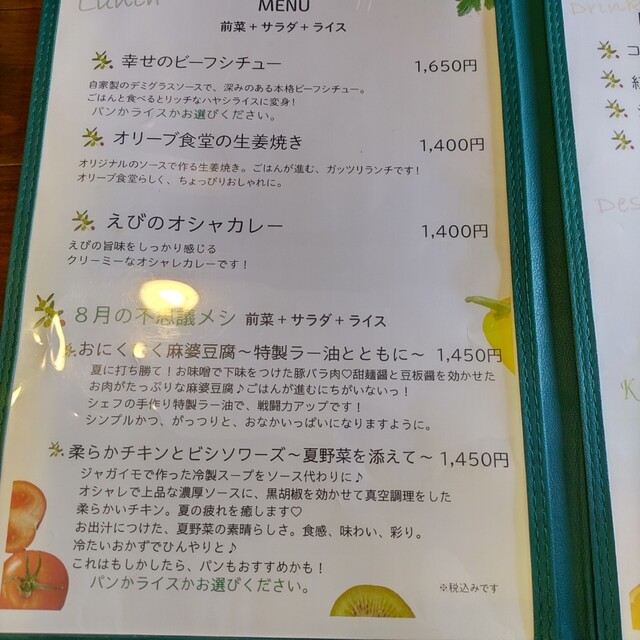 Lunch
MENU
前菜+サラダ+ライス
幸せのビーフシチュー 1,650円
自家製のデミグラスソースで、深みのある本格ビーフシチュー。
ごはんと食べるとリッチなハヤシライスに変身!
パンかライスかお選びください。
オリーブ食堂の生姜焼き 1,400円
オリジナルのソースで作る生姜焼き。ごはんが進む、ガッツリランチです!
オリーブ食堂らしく、ちょっぴりおしゃれに。
えびのオシャカレー 1,400円
えびの旨味をしっかり感じる
クリーミーなオシャレカレーです!
8月の不思議メシ 前菜+サラダ+ライス
おにくにく麻婆豆腐~特製ラー油とともに~ 1,450円
夏に打ち勝て!お味噌で下味をつけた豚バラ肉♡甜麺醤と豆板醤を効かせた
お肉がたっぷりな麻婆豆腐♪ごはんが進むにちがいないっ!
シェフの手作り特製ラー油で、戦闘力アップです!
シンプルかつ、がっつりと、おなかいっぱいになりますように。
柔らかチキンとビシソワーズ~夏野菜を添えて~ 1,450円
ジャガイモで作った冷製スープをソース代わりに♪
オシャレで上品な濃厚ソースに、黒胡椒を効かせて真空調理をした
柔らかいチキン。夏の疲れを癒します♡
お出汁につけた、夏野菜の素晴らしさ。食感、味わい、彩り。
冷たいおかずでひんやりと♪
これはもしかしたら、パンもおすすめかも!
パンかライスかお選びください。
※税込みです
Drink
コ
紅
Des
K